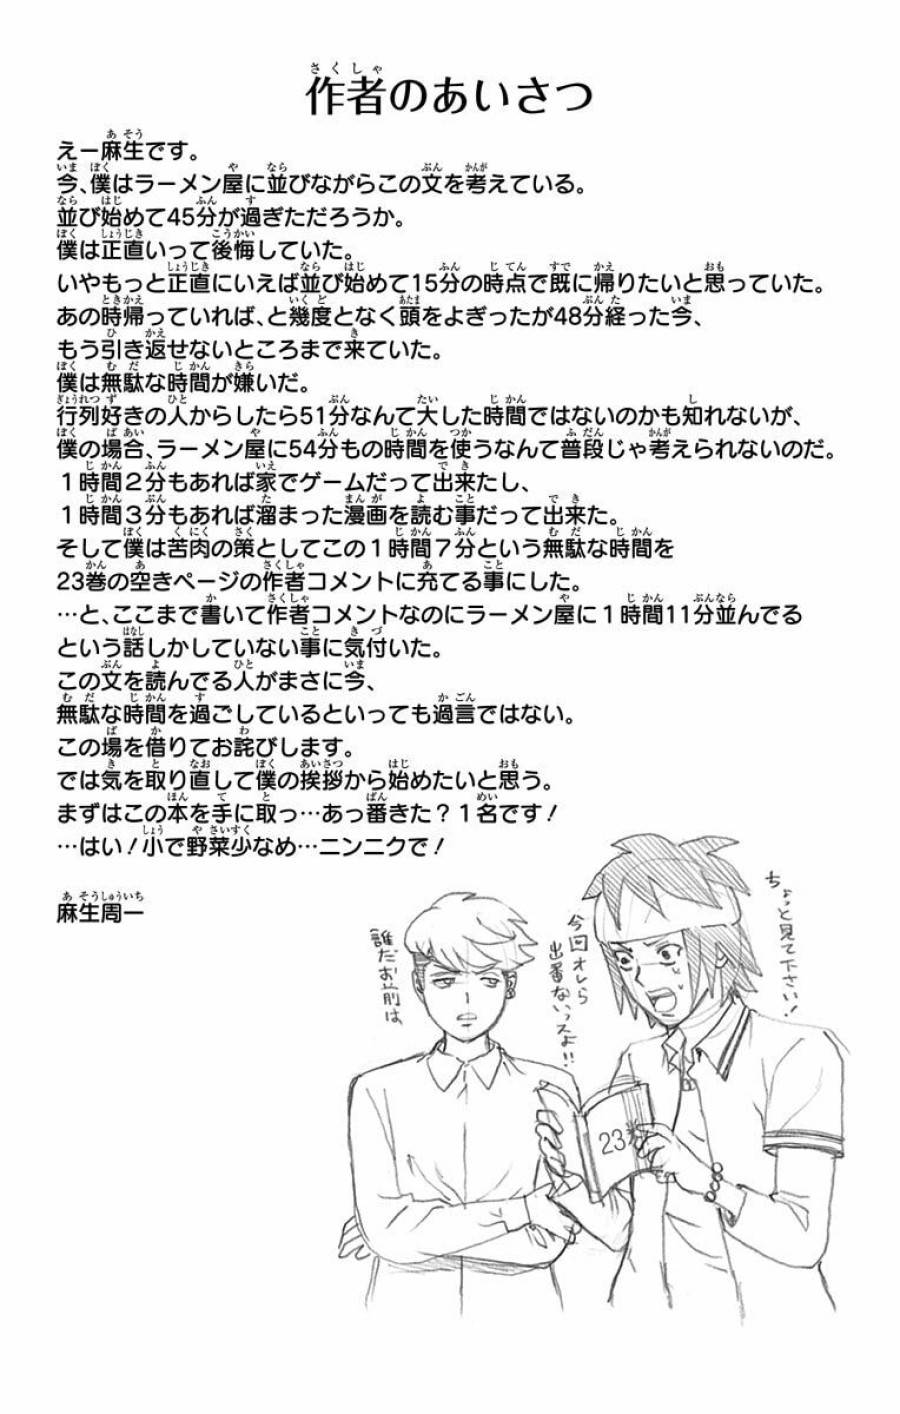 作者のあいさつ
えー麻生です。
今、僕はラーメン屋に並びながらこの文を考えている。
並び始めて45分が過ぎただろうか。
僕は正直いって後悔していた。
いやもっと正直にいえば並び始めて15分の時点で既に帰りたいと思っていた。
あの時帰っていれば、と幾度となく頭をよぎったが48分経った今、
もう引き返せないところまで来ていた。
僕は無駄な時間が嫌いだ。
行列好きの人からしたら51分なんて大した時間ではないのかも知れないが、
僕の場合、ラーメン屋に54分もの時間を使うなんて普段じゃ考えられないのだ。
１時間２分もあれば家でゲームだって出来たし、
１時間３分もあれば溜まった漫画を読む事だって出来た。
そして僕は苦肉の策としてこの１時間７分という無駄な時間を
23巻の空きページの作者コメントに充てる事にした。
…と、ここまで書いて作者コメントなのにラーメン屋に１時間11分並んでる
という話しかしていない事に気付いた。
この文を読んでる人がまさに今、
無駄な時間を過ごしているといっても過言ではない。
この場を借りてお詫びします。
では気を取り直して僕の挨拶から始めたいと思う。
まずはこの本を手に取っ…あっ番きた？１名です！
…はい！小で野菜少なめ…ニンニクで！
麻生周一
ちょっと見て下さい！
今回オレら
出番ないっスよ！！
誰だお前は
23巻